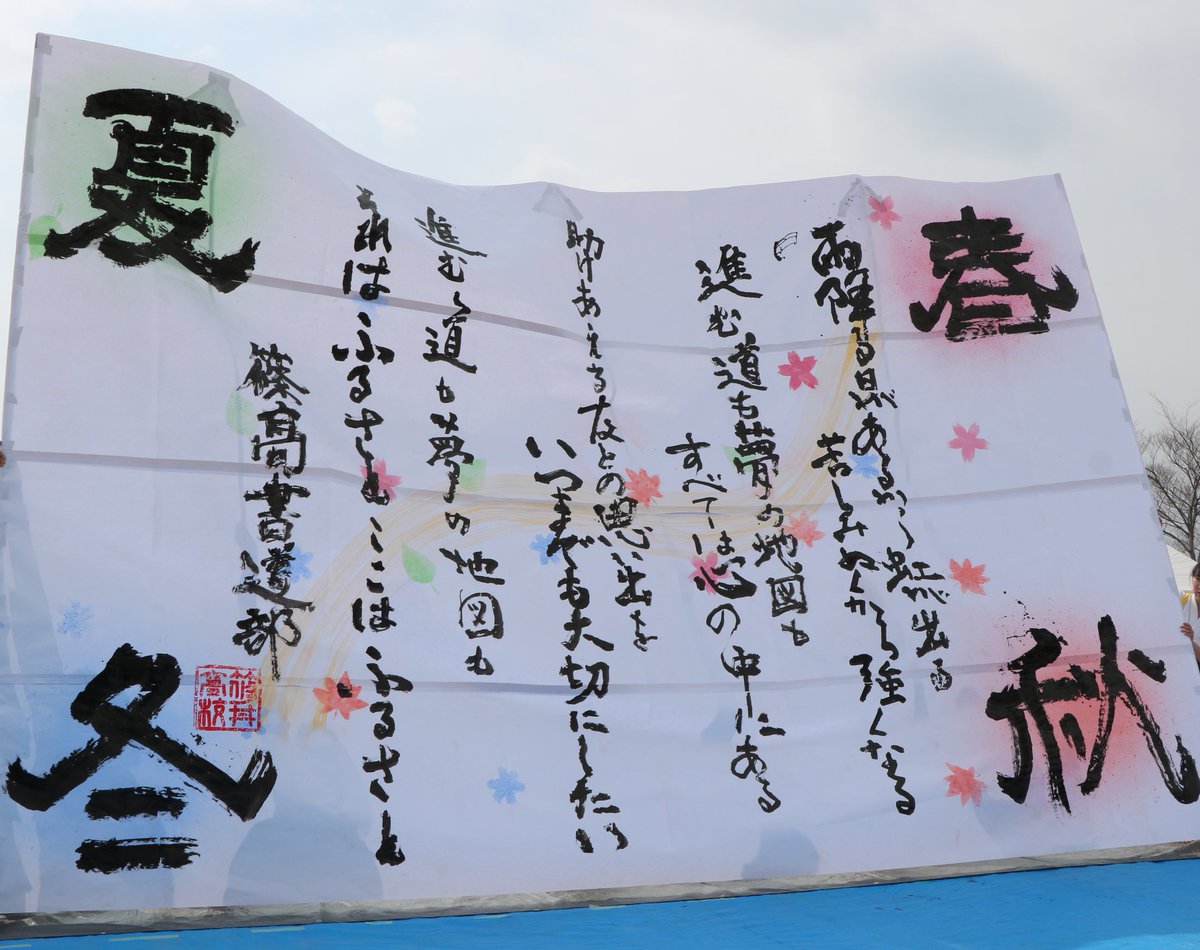 春
秋
雨降る思いあるから虹出る
苦しみぬくから強くなる
進む道も夢の地図も
すべては心の中にある
助けあえる友との思い出を
いつまでも大切にしたい
進む道も夢の地図も
それはふるさと ここはふるさと
夏
冬
篠高書道部